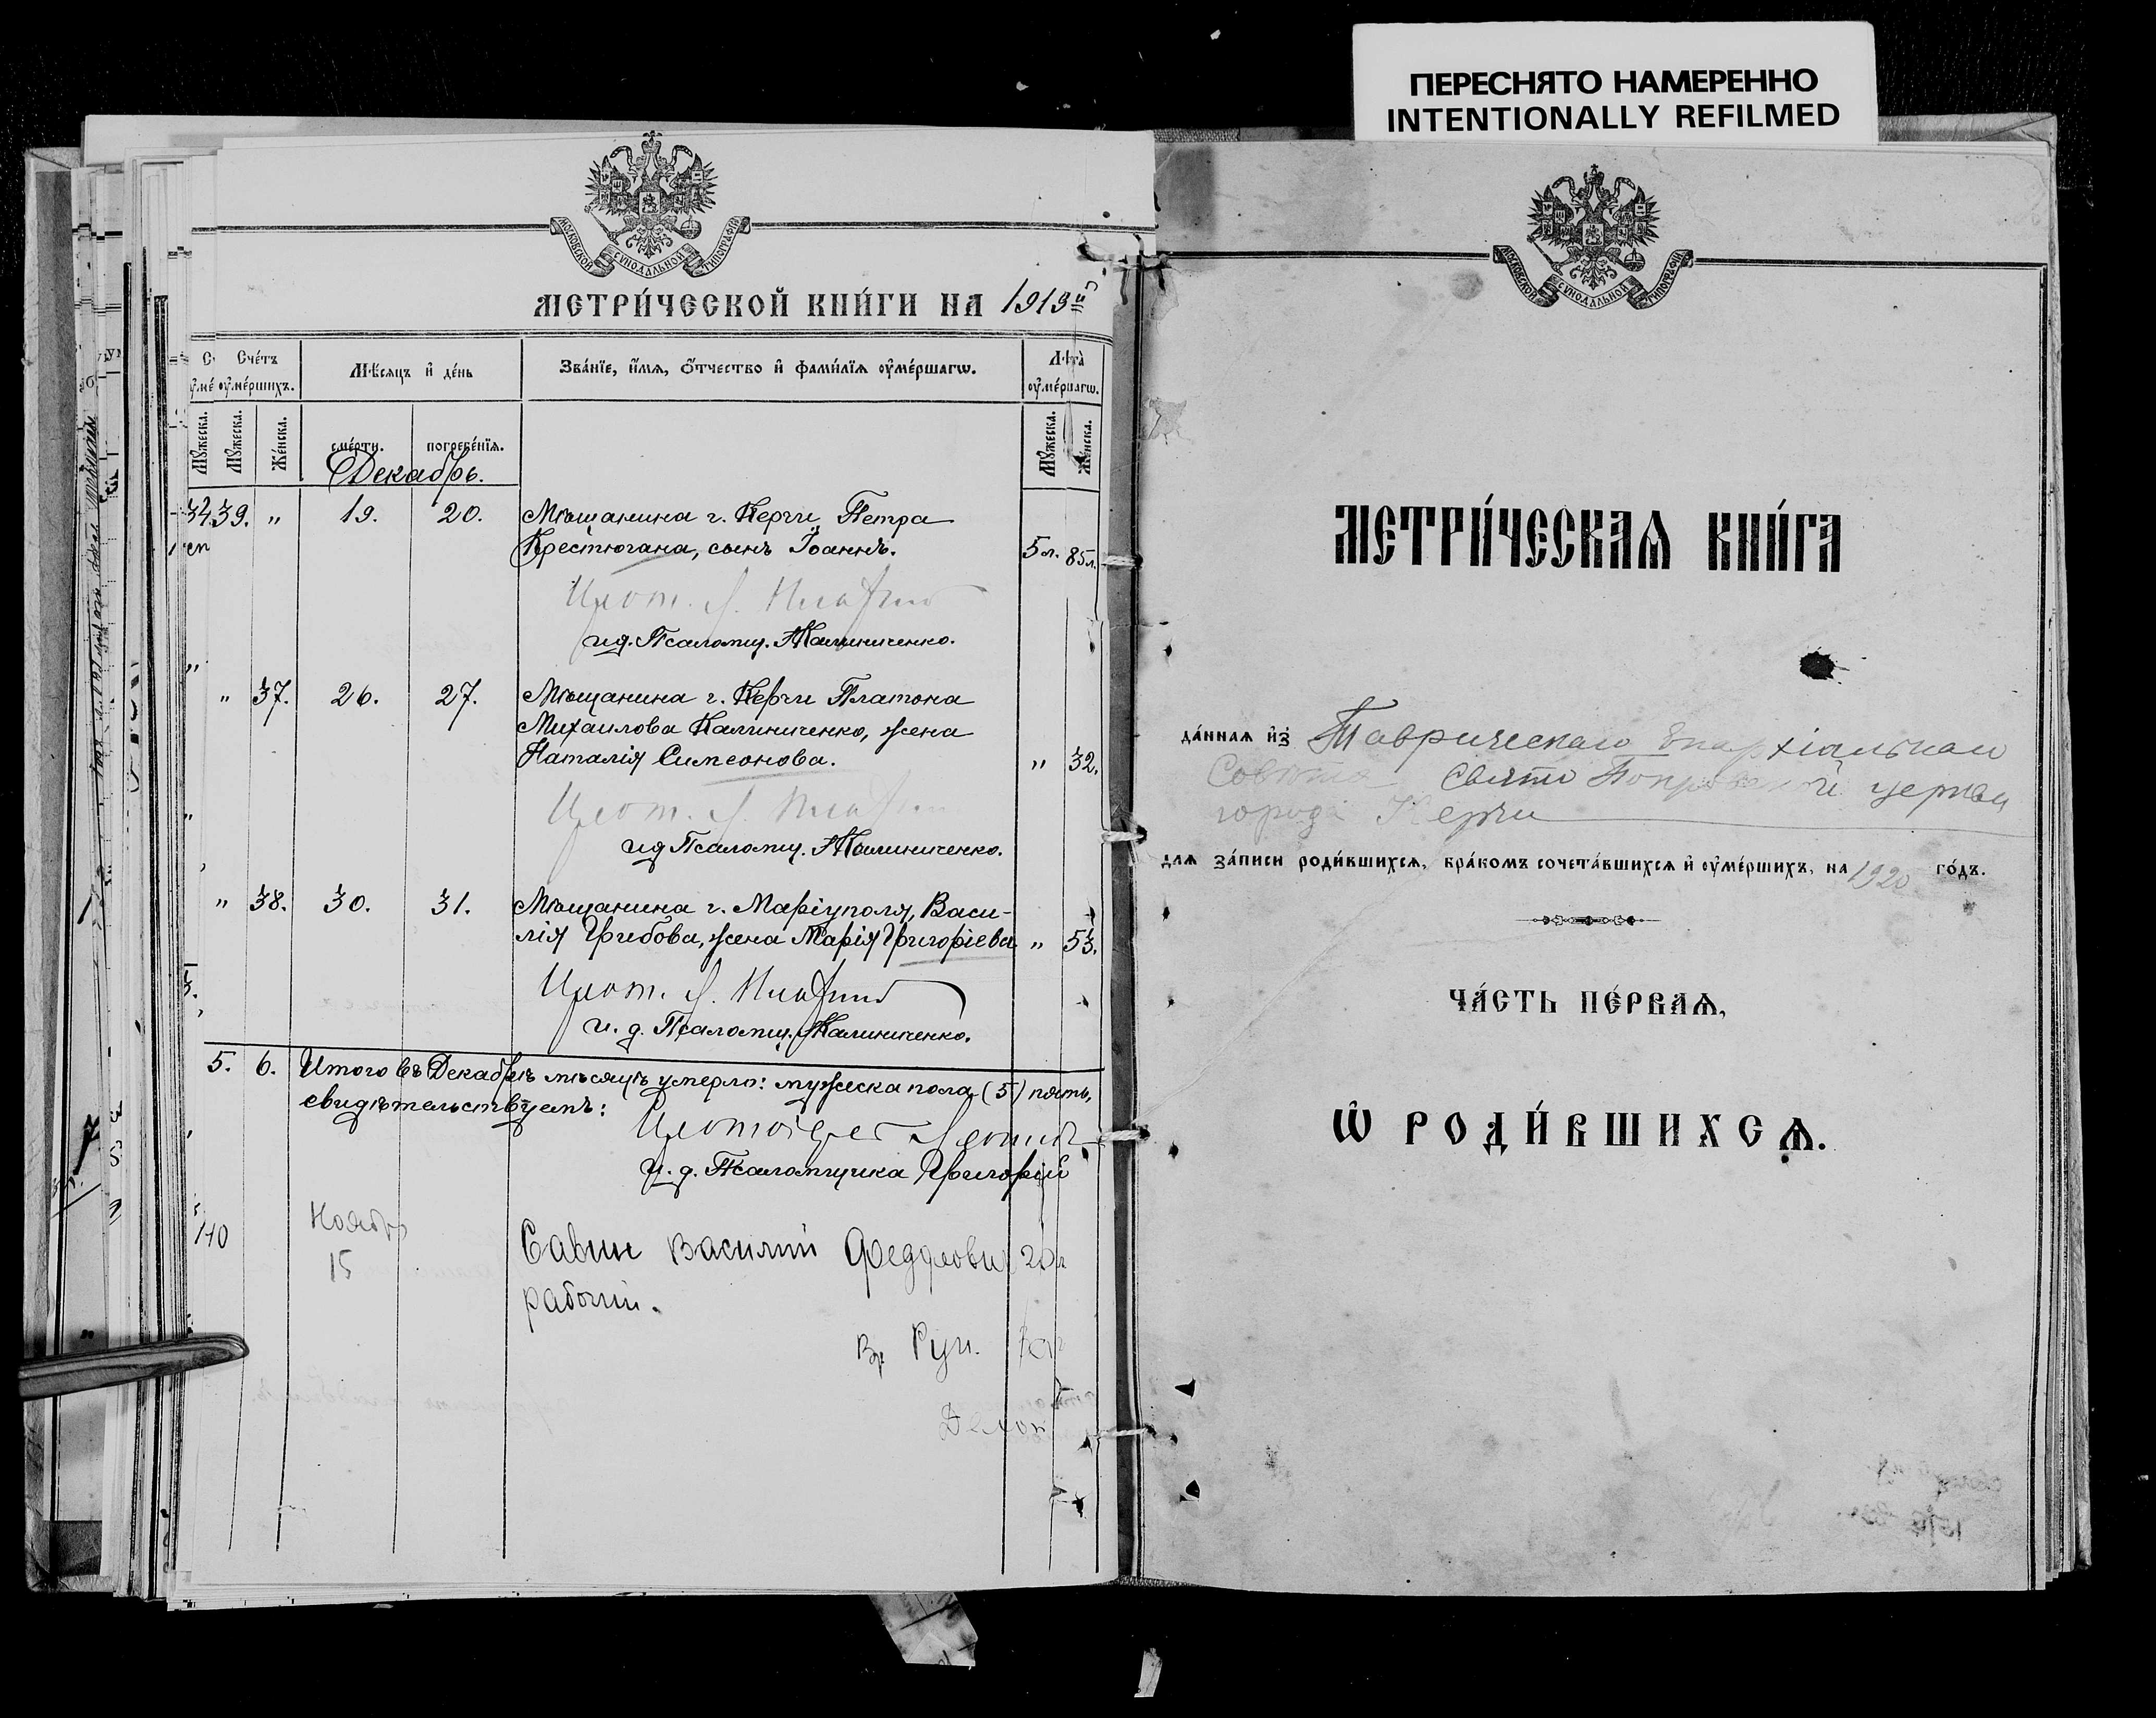 ПЕРЕСНЯТО НАМЕРЕННО
INTENTIONALLY REFILMED
МОСКОВСКОЙ СѴНОДАЛЬНОЙ ТИПОГРАФІИ
МЕТРИ́ЧЕСКОЙ КНИ́ГИ НА 1919й
Сче́тъ ᲂу҆ме́ршихъ.
Мѣ́сяцъ и҆ де́нь
Зва́нїе, и҆́мѧ, ѻ҆́тчество и҆ фами́лїѧ ᲂу҆ме́ршагѡ.
Лѣ́та ᲂу҆ме́ршагѡ.
Мꙋ́жеска.
Мꙋ́жеска.
Же́нска.
сме́рти.
погребе́нїѧ.
Мꙋ́жеска.
Же́нска.
Декабрь.
34. 39. " 19. 20. Мѣщанина г. Керчи Петра
Крестюгана, сынъ Іоаннъ. 5 л. 85 л.
Прот.
и д. Псаломщ. Калиниченко.
" 37. 26. 27. Мѣщанина г. Керчи Платона
Михаилова Калиниченко, жена
Наталія Симеонова. " 32.
Прот.
и д Псаломщ. Калиниченко.
" 38. 30. 31. Мѣщанина г. Маріуполя, Васи-
лія Грибова, жена Марія Григоріева " 53.
Прот.
и. д. Псаломщ. Калиниченко.
5. 6. Итого въ Декабрѣ мѣсяцѣ умерло: мужеска пола (5) пять,
свидѣтельствуемъ:
Протоіерей
и. д. Псаломщика Григорій
Ноябрь
15
Савин Василий Федорович
рабочий.
МОСКОВСКОЙ СѴНОДАЛЬНОЙ ТИПОГРАФІИ
МЕТРИ́ЧЕСКАѦ КНИ́ГА
да́ннаѧ и҆з̾ Таврическаго Епархіальнаго
Совѣта Свято Покровской церкви
города Керчи
длѧ за́писи роди́вшихсѧ, бра́комъ сочета́вшихсѧ и҆ ᲂу҆ме́ршихъ, на 1920 го́дъ.
ЧА́СТЬ ПЕ́РВАѦ,
Ѽ РОДИ́ВШИХСѦ.